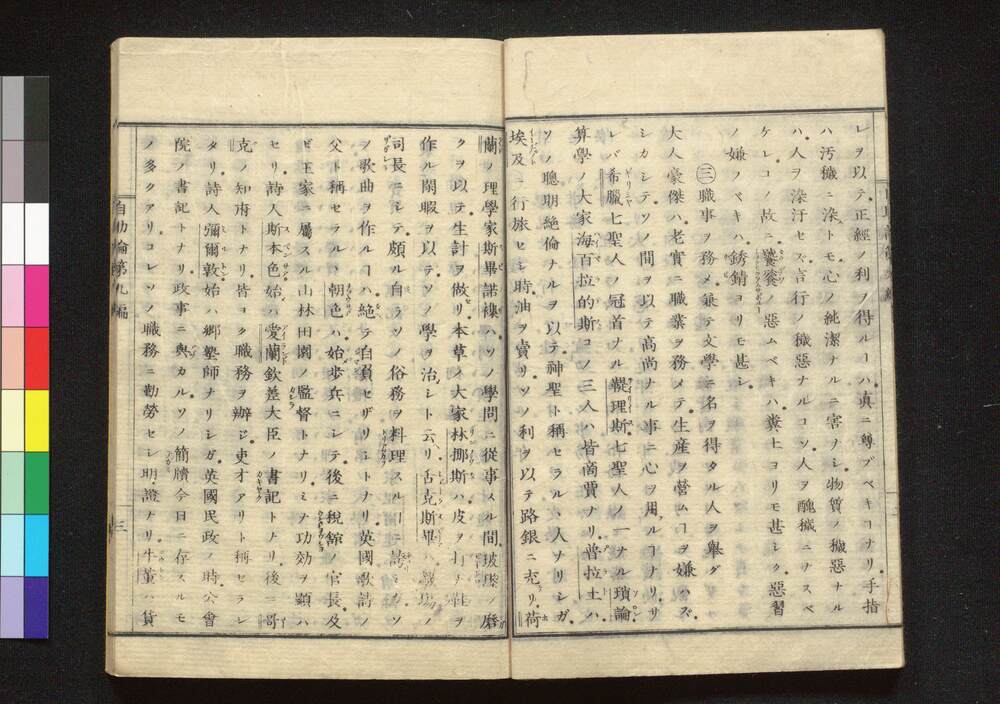 レヲ以テ正経ノ利ヲ得ルーハ真ニ尊ブベキコナリ手指
ハ汚穢ニ染トモ心ノ純潔ナルニ害ヲシ物質ノ穢惡ナル
ハ人ヲ染汙セズ言行ノ穢惡ナルコソ人ヲ醜穢ニナスベ
ケレコノ故ニ饕餮ノ惡ムベキハ糞土ヨリモ甚シク惡習
ノ嫌フベキハ銹錆ヨリモ甚シ
㊂職事ヲ務メ兼テ文學ニ名ヲ得タル人ヲ舉グ
大人豪傑ハ老實ニ職業ヲ務メテ生産ヲ營ムコヲ嫌ハズ
シカシテソノ間ヲ以テ高尚ナル事ニ心ヲ用ルコナリサ
レバ希臘七聖人ノ冠首ナル韃理斯七聖人ノ一ナル瑣論
算學ノ大家海百拉的斯コノ三人ハ皆商賈ナリ普拉土ハ
ソノ聰明絶倫ナルヲ以テ神聖ト稱セラル丶人ナリシガ
埃及ニ行旅セシ時油ヲ賣リソノ利ヲ以テ路銀ニ充リ荷
蘭ノ理學家斯畢諾褸ハソノ學問ニ從事スル間玻瓈ノ磨
クヲ以テ生計ヲ做セリ本草ノ大家林挪斯ハ皮ヲ打チ鞋ヲ
作ル閑暇ヲ以テソノ學ヲ治シト云リ舌克斯畢ハ戲場ノ
司長ニシテ頗ル自ラソノ俗務ヲ料理スルーヲ誇リソ
ノ歌曲ヲ作ルーハ絶テ自負セザリシトナリ英國歌詩ノ
父ト稱セラル丶朝色ハ始歩兵ニシテ後ニ稅舘ノ官長及
ビ王家ニ屬スル山林田園ノ監督トナリミナ功効ヲ顯ハ
セリ詩人斯本色始ハ愛蘭欽差大臣ノ書記トナリ後ニ哥
克ノ知府トナリ皆ヨク職務ヲ辦ジ吏才アリト稱セラレ
タリ詩人彌爾敦始ハ郷塾師ナリシガ英國民政ノ時公會
院ノ書記トナリ政事ニ與カルソノ簡牘今日ニ存スルモ
ノ多クアリコレソノ職務ニ勸勞セシ明證ナリ牛董ハ貨
自助論第九編
三